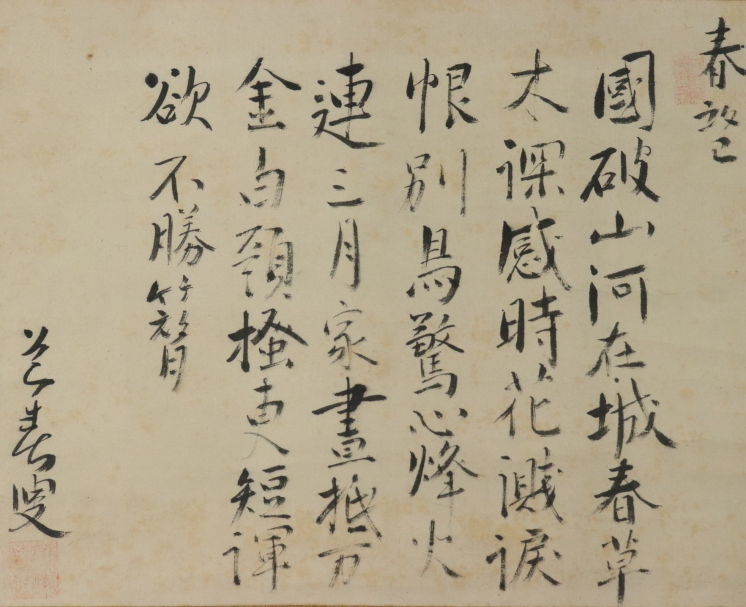 春望
國破山河在城春草
木深感時花濺淚
恨別鳥驚心烽火
連三月家書抵万
金白頭搔更短渾
欲不勝簪
叟